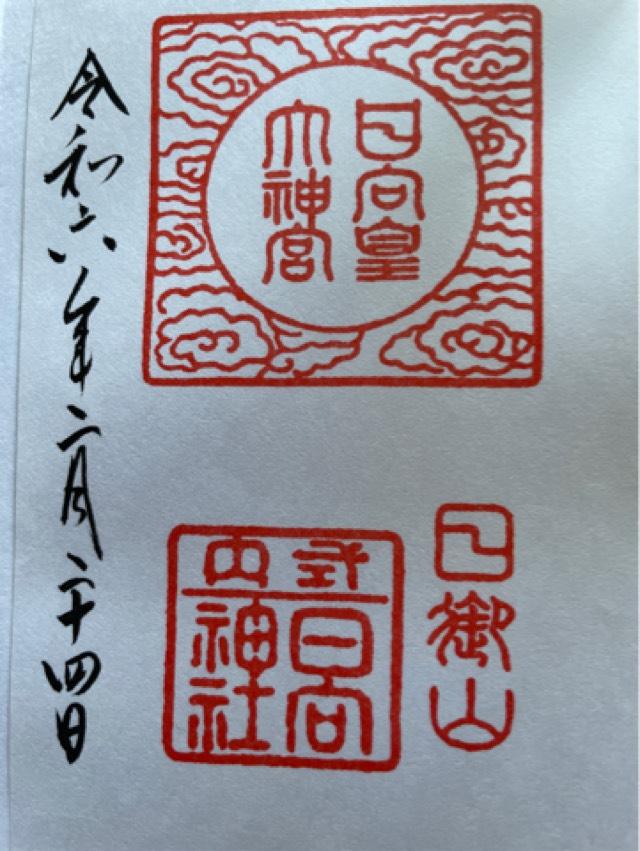 日向皇
大神宮
日御山
式内
日向
神社
令和六年二月二十四日